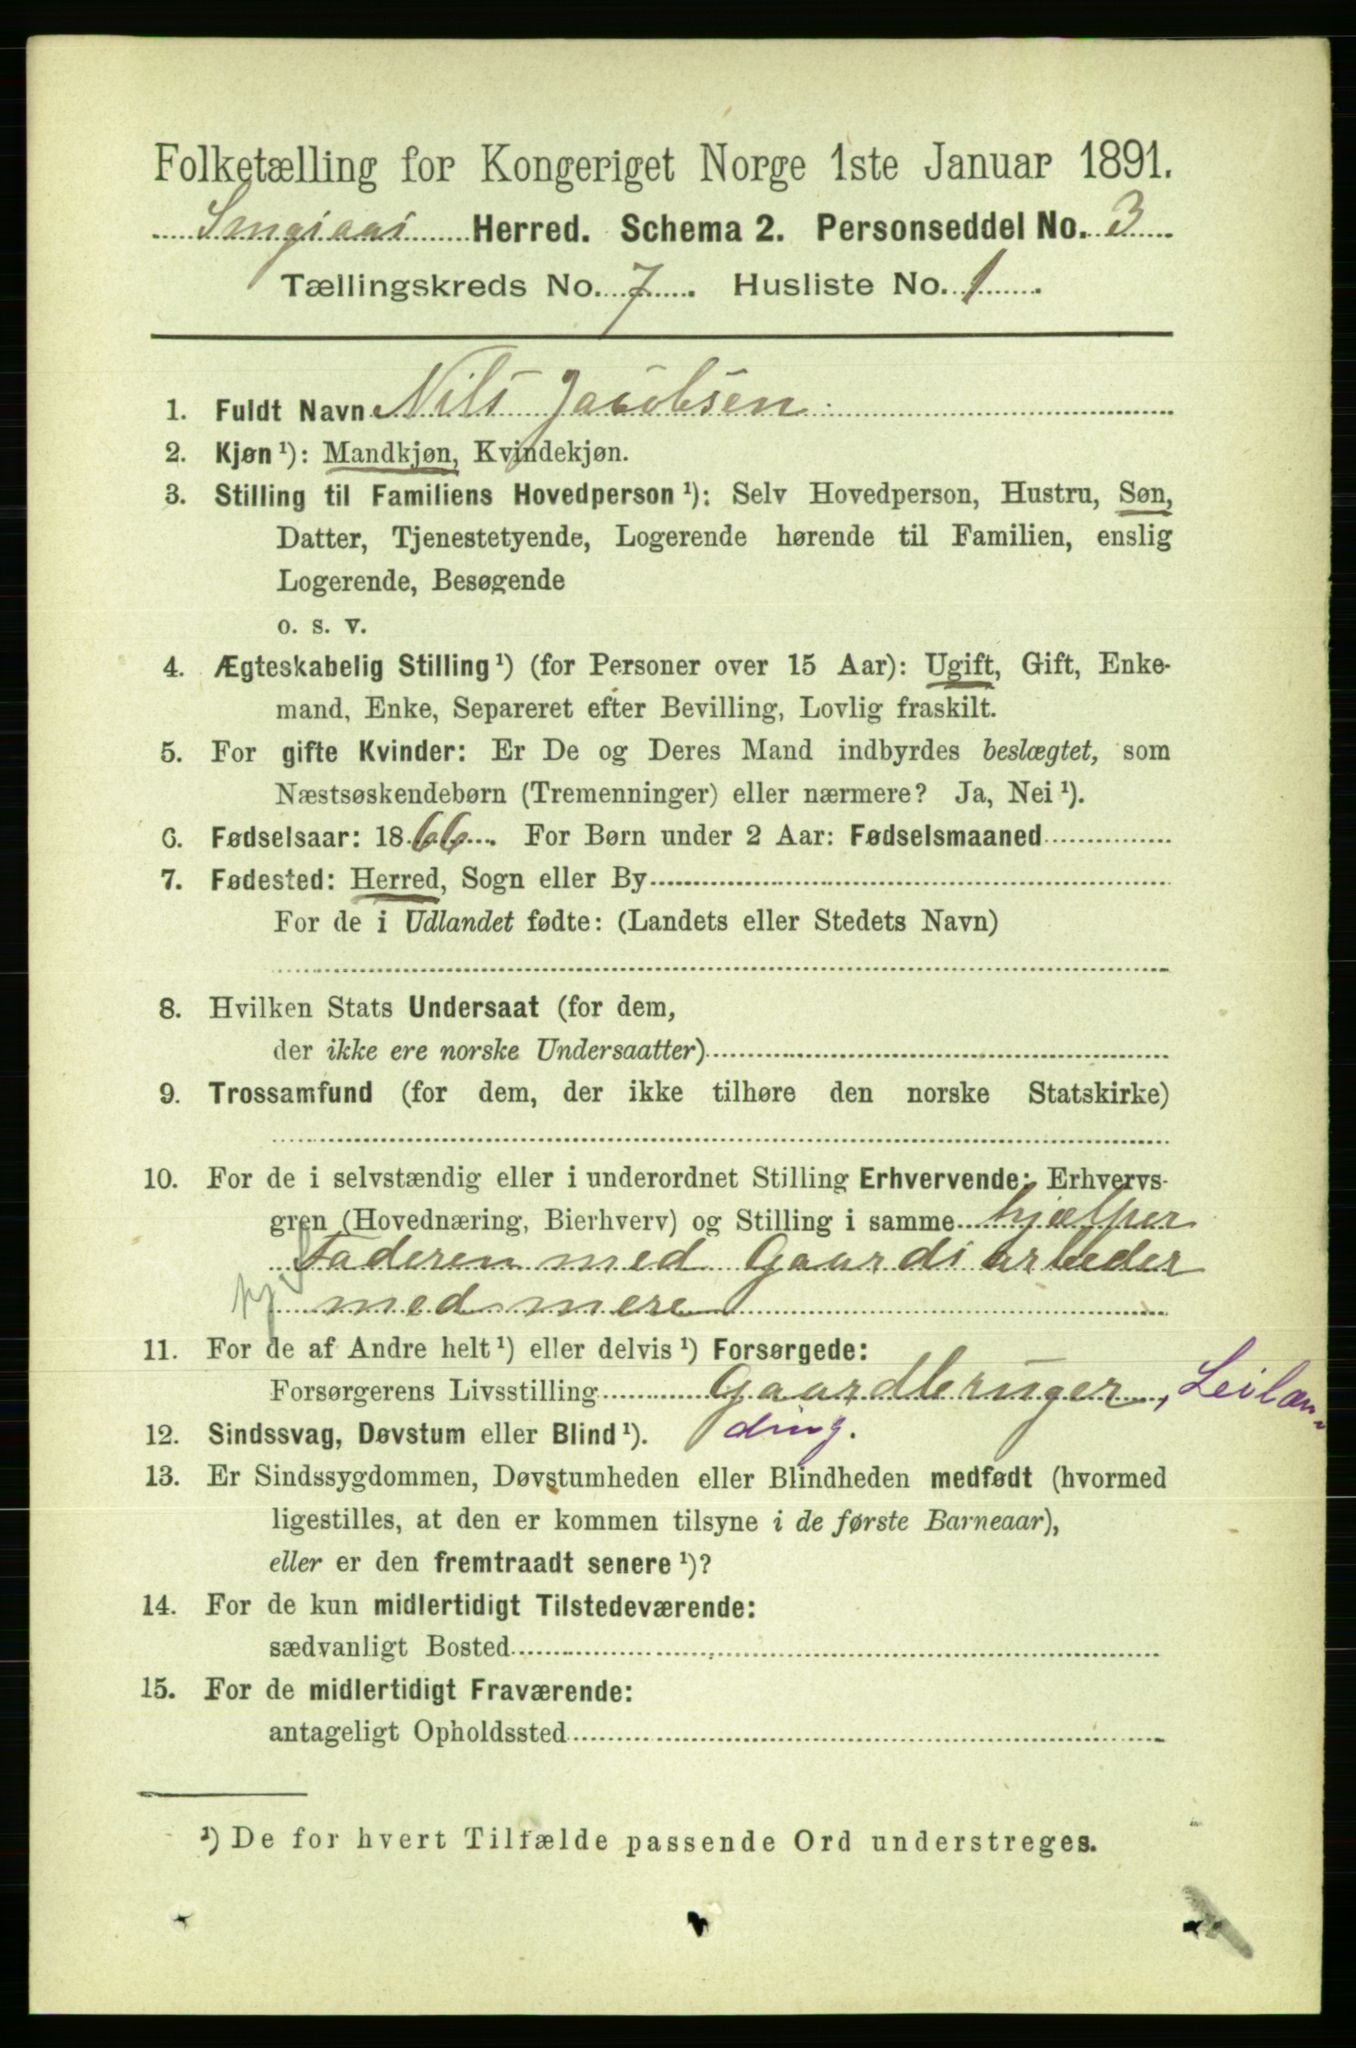 Folketælling for Kongeriget Norge 1ste Januar 1891.
Herred. Schema 2. Personseddel No. 3
Tællingskreds No. 7. Husliste No. 1.
1. Fuldt Navn Nils Jacobsen
2. Kjøn ¹): Mandkjøn, Kvindekjøn.
3. Stilling til Familiens Hovedperson ¹): Selv Hovedperson, Hustru, Søn,
Datter, Tjenestetyende, Logerende hørende til Familien, enslig
Logerende, Besøgende
o. s. v.
4. Ægteskabelig Stilling ¹) (for Personer over 15 Aar): Ugift, Gift, Enke-
mand, Enke, Separeret efter Bevilling, Lovlig fraskilt.
5. For gifte Kvinder: Er De og Deres Mand indbyrdes beslægtet, som
Næstsøskendebørn (Tremenninger) eller nærmere? Ja, Nei ¹).
6. Fødselsaar: 1866. For Børn under 2 Aar: Fødselsmaaned
7. Fødested: Herred, Sogn eller By
For de i Udlandet fødte: (Landets eller Stedets Navn)
8. Hvilken Stats Undersaat (for dem,
der ikke ere norske Undersaatter)
9. Trossamfund (for dem, der ikke tilhøre den norske Statskirke)
10. For de i selvstændig eller i underordnet Stilling Erhvervende: Erhvervs-
gren (Hovednæring, Bierhverv) og Stilling i samme hjælper
Faderen med Gaardsarbeder
med mere
11. For de af Andre helt ¹) eller delvis ¹) Forsørgede:
Forsørgerens Livsstilling Gaardbruger, Leilæn-
ding.
12. Sindssvag, Døvstum eller Blind ¹).
13. Er Sindssygdommen, Døvstumheden eller Blindheden medfødt (hvormed
ligestilles, at den er kommen tilsyne i de første Barneaar),
eller er den fremtraadt senere ¹)?
14. For de kun midlertidigt Tilstedeværende:
sædvanligt Bosted
15. For de midlertidigt Fraværende:
antageligt Opholdssted
¹) De for hvert Tilfælde passende Ord understreges.